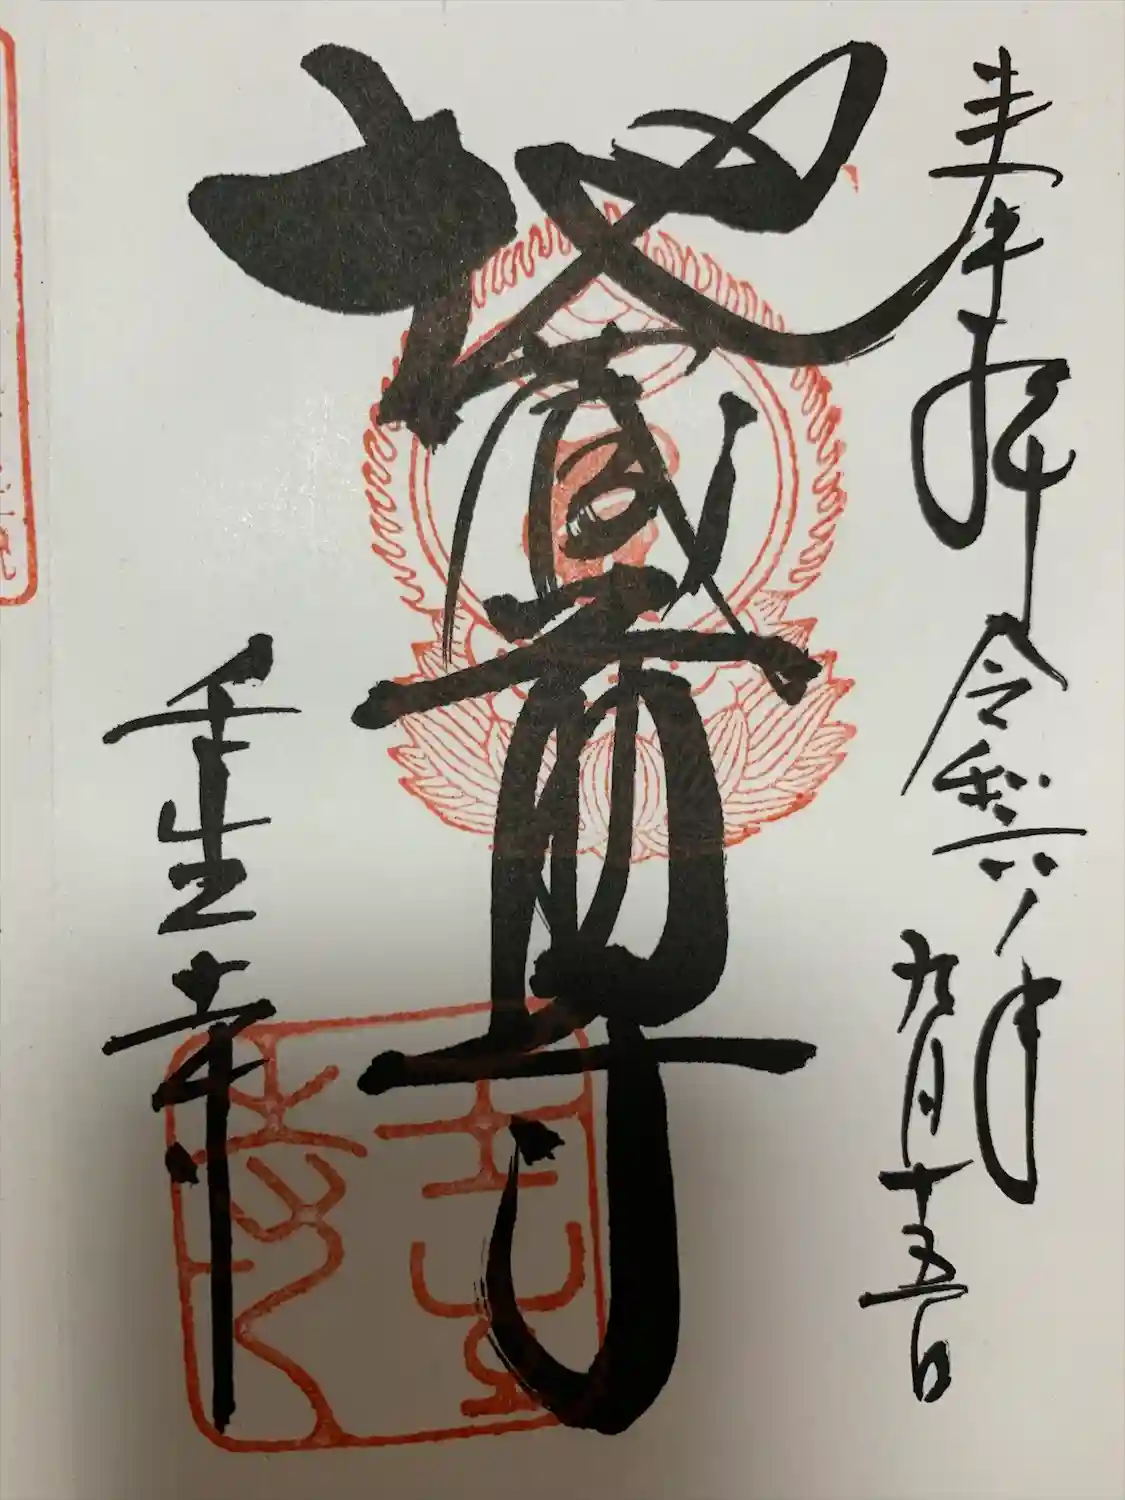 奉拝 令和六年
九月十五日
地蔵尊
壬生寺